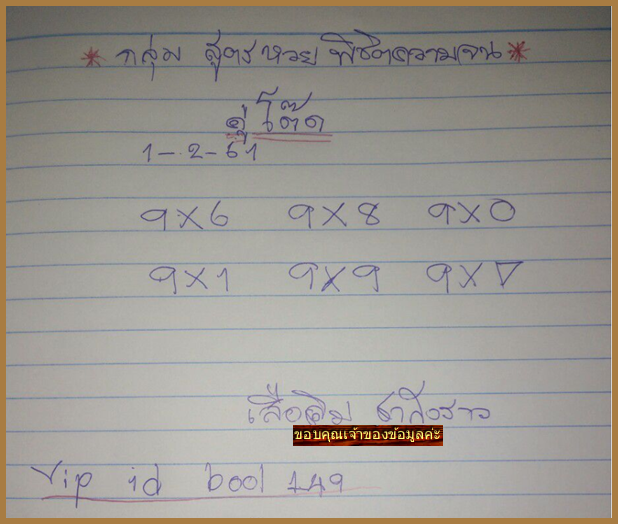 * กลุ่ม สูตรหวย พิชิตความจน *
คู่โต๊ด
1-2-61
9x6 9x8 9x0
9x1 9x9 9x7
เสือดิม ชากังราว
ขอบคุณเจ้าของข้อมูลค่ะ
Vip id bool 149